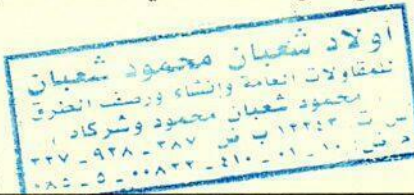 أولاد شعبان محمود شعبان
للمقاولات العامة وإنشاء ورصف الطرق
محمود شعبان محمود وشركاه
س ت ١٢٢٤٣ ب ض ٣٨٧ - ٩٢٨ - ٢٢٧